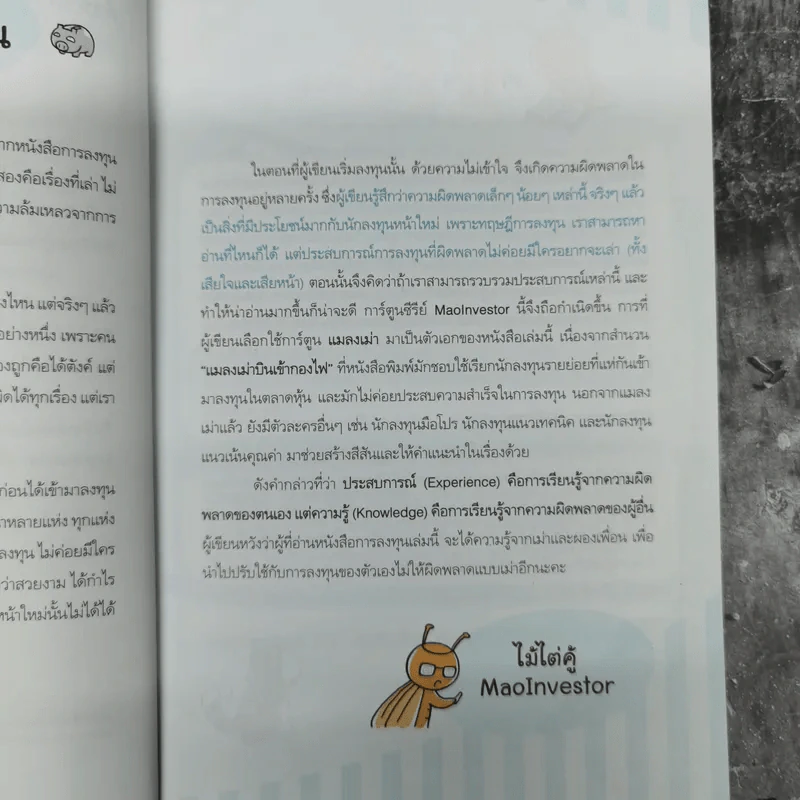 น
ากหนังสือการลงทุน
สองคือเรื่องที่เล่า ไม่
วามล้มเหลวจากการ
งไหน แต่จริงๆ แล้ว
อย่างหนึ่ง เพราะคน
องถูกคือได้ตังค์ แต่
ผิดได้ทุกเรื่อง แต่เรา
ก่อนได้เข้ามาลงทุน
าหลายแห่ง ทุกแห่ง
ลงทุน ไม่ค่อยมีใคร
ว่าสวยงาม ได้กำไร
หน้าใหม่นั้นไม่ได้ได้
ในตอนที่ผู้เขียนเริ่มลงทุนนั้น ด้วยความไม่เข้าใจ จึงเกิดความผิดพลาดใน
การลงทุนอยู่หลายครั้ง ซึ่งผู้เขียนรู้สึกว่าความผิดพลาดเล็กๆ น้อยๆ เหล่านี้ จริงๆ แล้ว
เป็นสิ่งที่มีประโยชน์มากกับนักลงทุนหน้าใหม่ เพราะทฤษฎีการลงทุน เราสามารถหา
อ่านที่ไหนก็ได้ แต่ประสบการณ์การลงทุนที่ผิดพลาดไม่ค่อยมีใครอยากจะเล่า (ทั้ง
เสียใจและเสียหน้า) ตอนนั้นจึงคิดว่าถ้าเราสามารถรวบรวมประสบการณ์เหล่านี้ และ
ทำให้น่าอ่านมากขึ้นก็น่าจะดี การ์ตูนซีรีย์ MaoInvestor นี้จึงถือกำเนิดขึ้น การที่
ผู้เขียนเลือกใช้การ์ตูน แมลงเม่า มาเป็นตัวเอกของหนังสือเล่มนี้ เนื่องจากสำนวน
"แมลงเม่าบินเข้ากองไฟ" ที่หนังสือพิมพ์มักชอบใช้เรียกนักลงทุนรายย่อยที่แห่กันเข้า
มาลงทุนในตลาดหุ้น และมักไม่ค่อยประสบความสำเร็จในการลงทุน นอกจากแมลง
เม่าแล้ว ยังมีตัวละครอื่นๆ เช่น นักลงทุนมือโปร นักลงทุนแนวเทคนิค และนักลงทุน
แนวเน้นคุณค่า มาช่วยสร้างสีสันและให้คำแนะนำในเรื่องด้วย
ดังคำกล่าวที่ว่า ประสบการณ์ (Experience) คือการเรียนรู้จากความผิด
พลาดของตนเอง แต่ความรู้ (Knowledge) คือการเรียนรู้จากความผิดพลาดของผู้อื่น
ผู้เขียนหวังว่าผู้ที่อ่านหนังสือการลงทุนเล่มนี้ จะได้ความรู้จากเม่าและผองเพื่อน เพื่อ
นำไปปรับใช้กับการลงทุนของตัวเองไม่ให้ผิดพลาดแบบเม่าอีกนะคะ
ไม้ไต่คู้
MaoInvestor